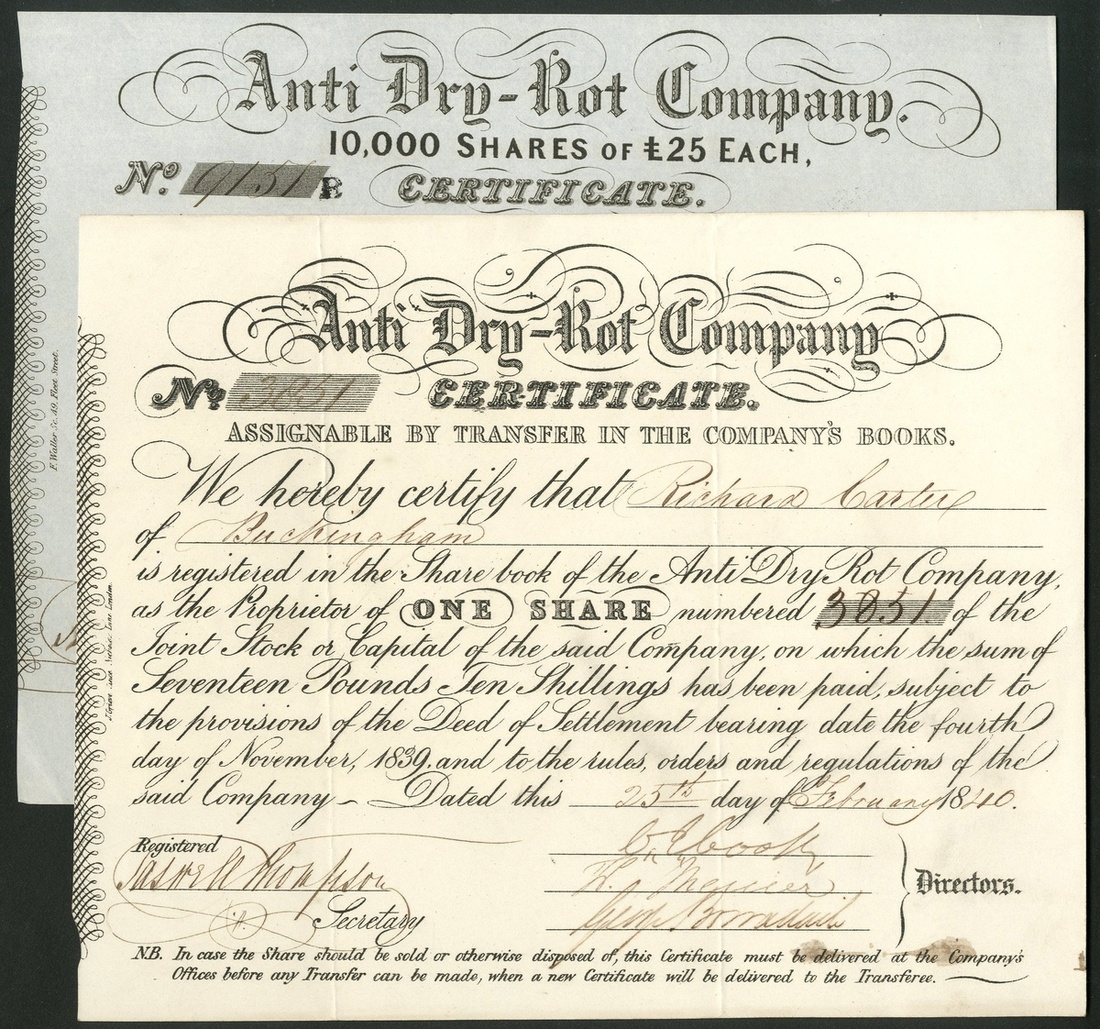 Anti Dry-Rot Company.
10,000 SHARES OF £25 EACH,
No. 9151 B CERTIFICATE.
F. Waller Sc. 49, Fleet Street.
Anti Dry-Rot Company
No. 3851 CERTIFICATE.
ASSIGNABLE BY TRANSFER IN THE COMPANY'S BOOKS.
We hereby certify that Richard Carter
of Buckingham
is registered in the Share book of the Anti Dry Rot Company,
as the Proprietor of ONE SHARE numbered 3851 of the
Joint Stock or Capital of the said Company, on which the sum of
Seventeen Pounds Ten Shillings has been paid, subject to
the provisions of the Deed of Settlement bearing date the fourth
day of November, 1839, and to the rules, orders and regulations of the
said Company – Dated this 25th day of February 1840.
Registered
Thompson
Secretary
Cook
Directors.
N.B. In case the Share should be sold or otherwise disposed of, this Certificate must be delivered at the Company's
Offices before any Transfer can be made, when a new Certificate will be delivered to the Transferee.